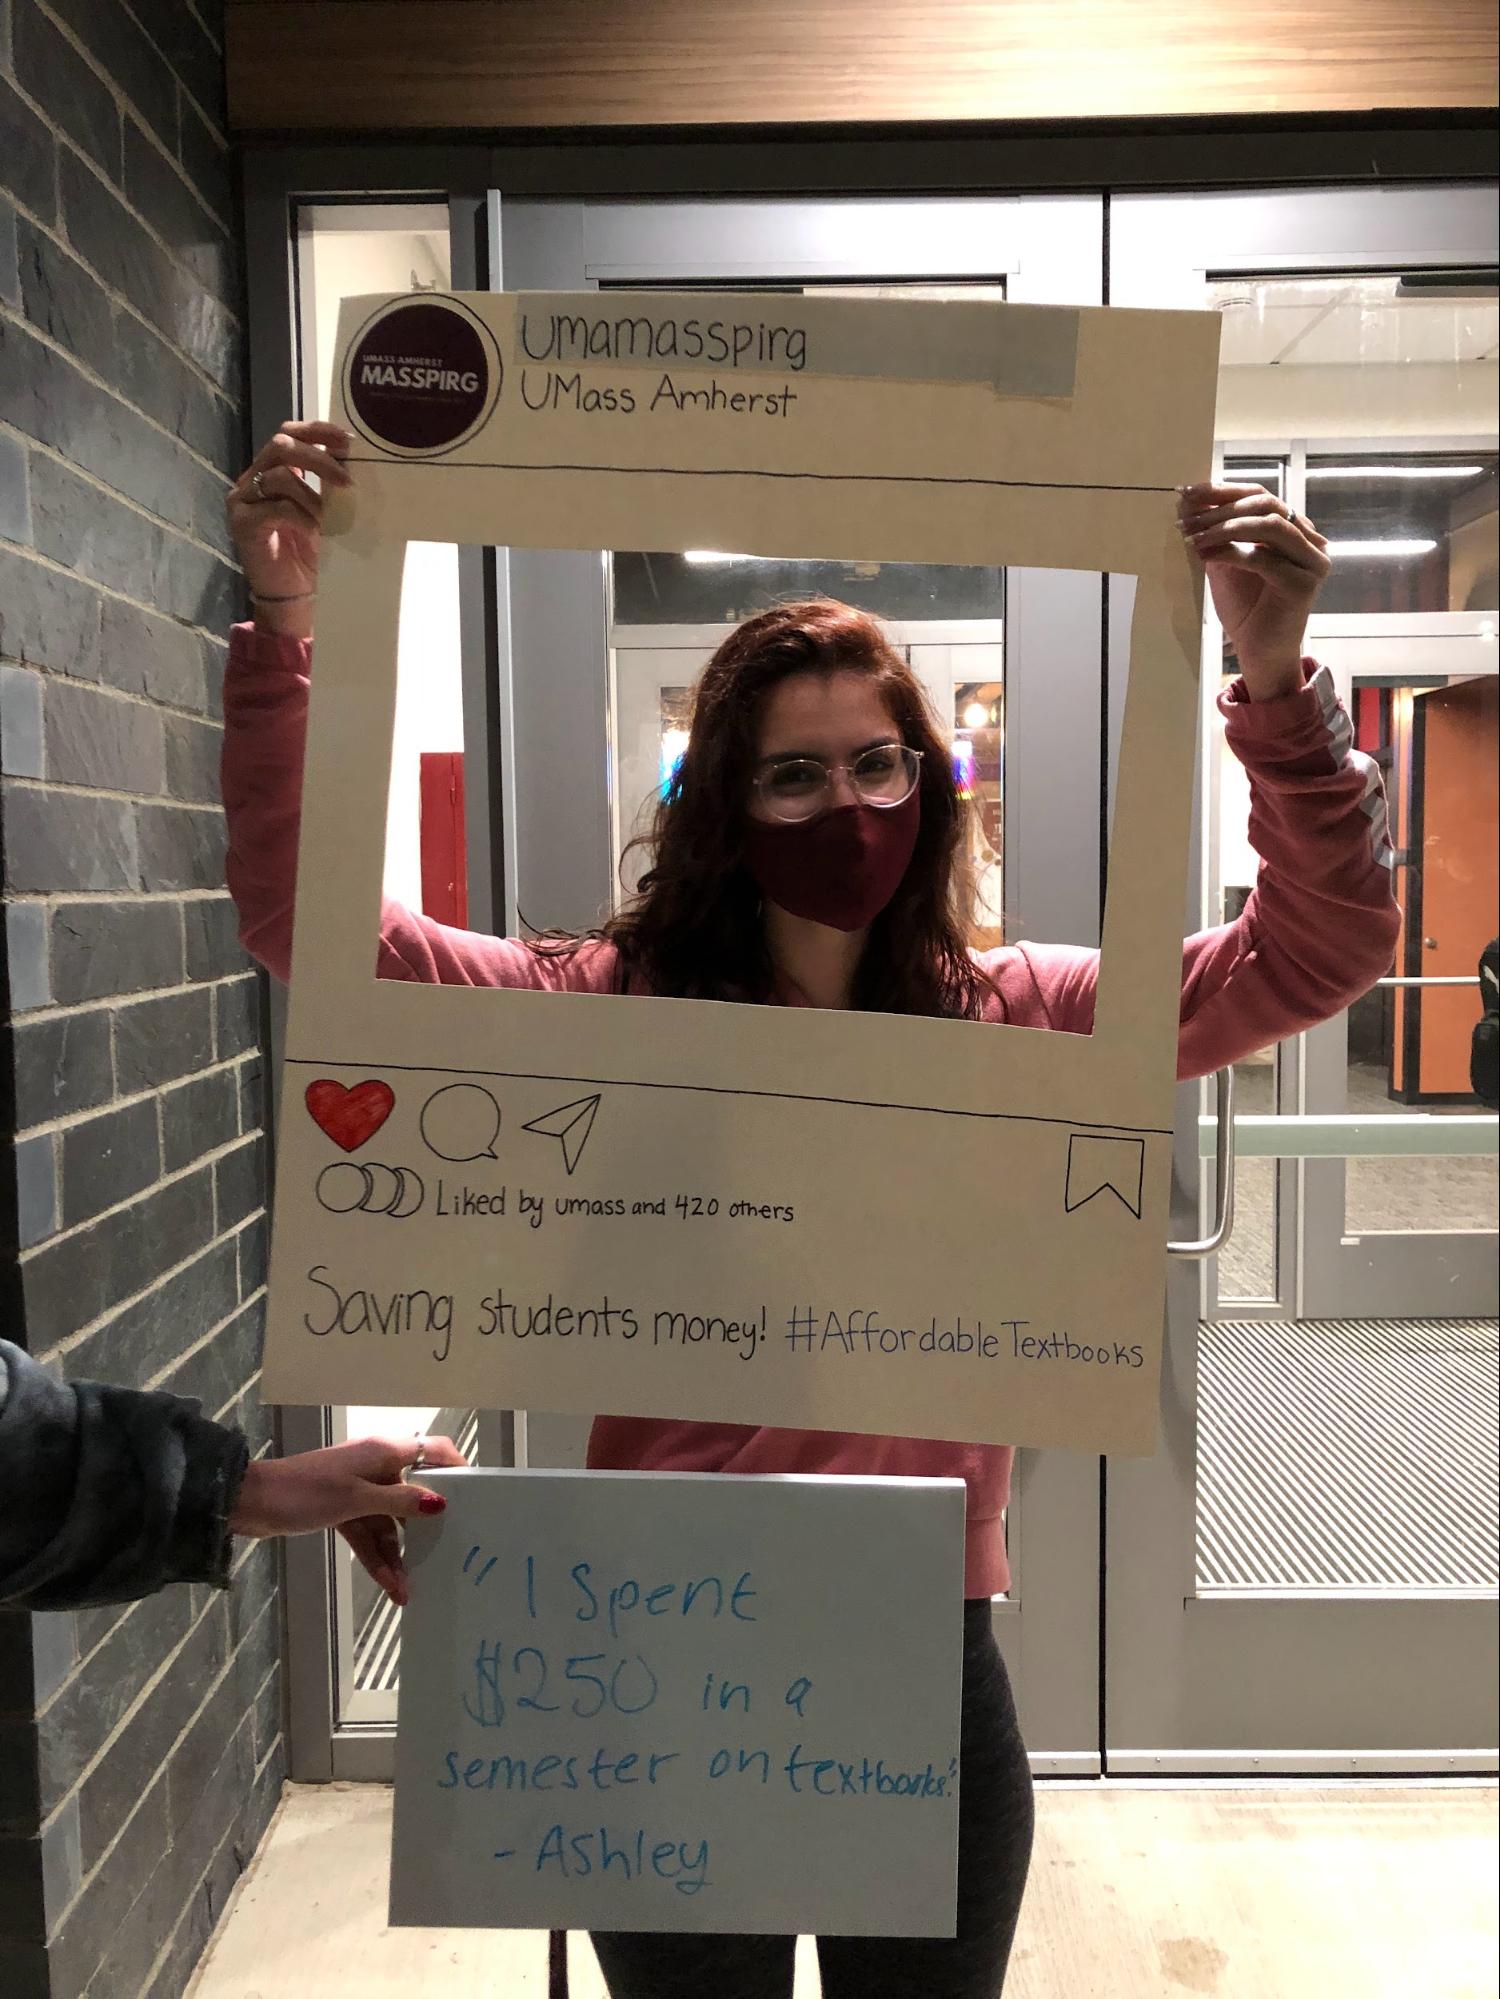 UMASS AMHERST
MASSPIRG
umamasspirg
UMass Amherst
Liked by umass and 420 others
Saving students money! #AffordableTextbooks
"I Spent
$250 in a
semester on textbooks."
- Ashley